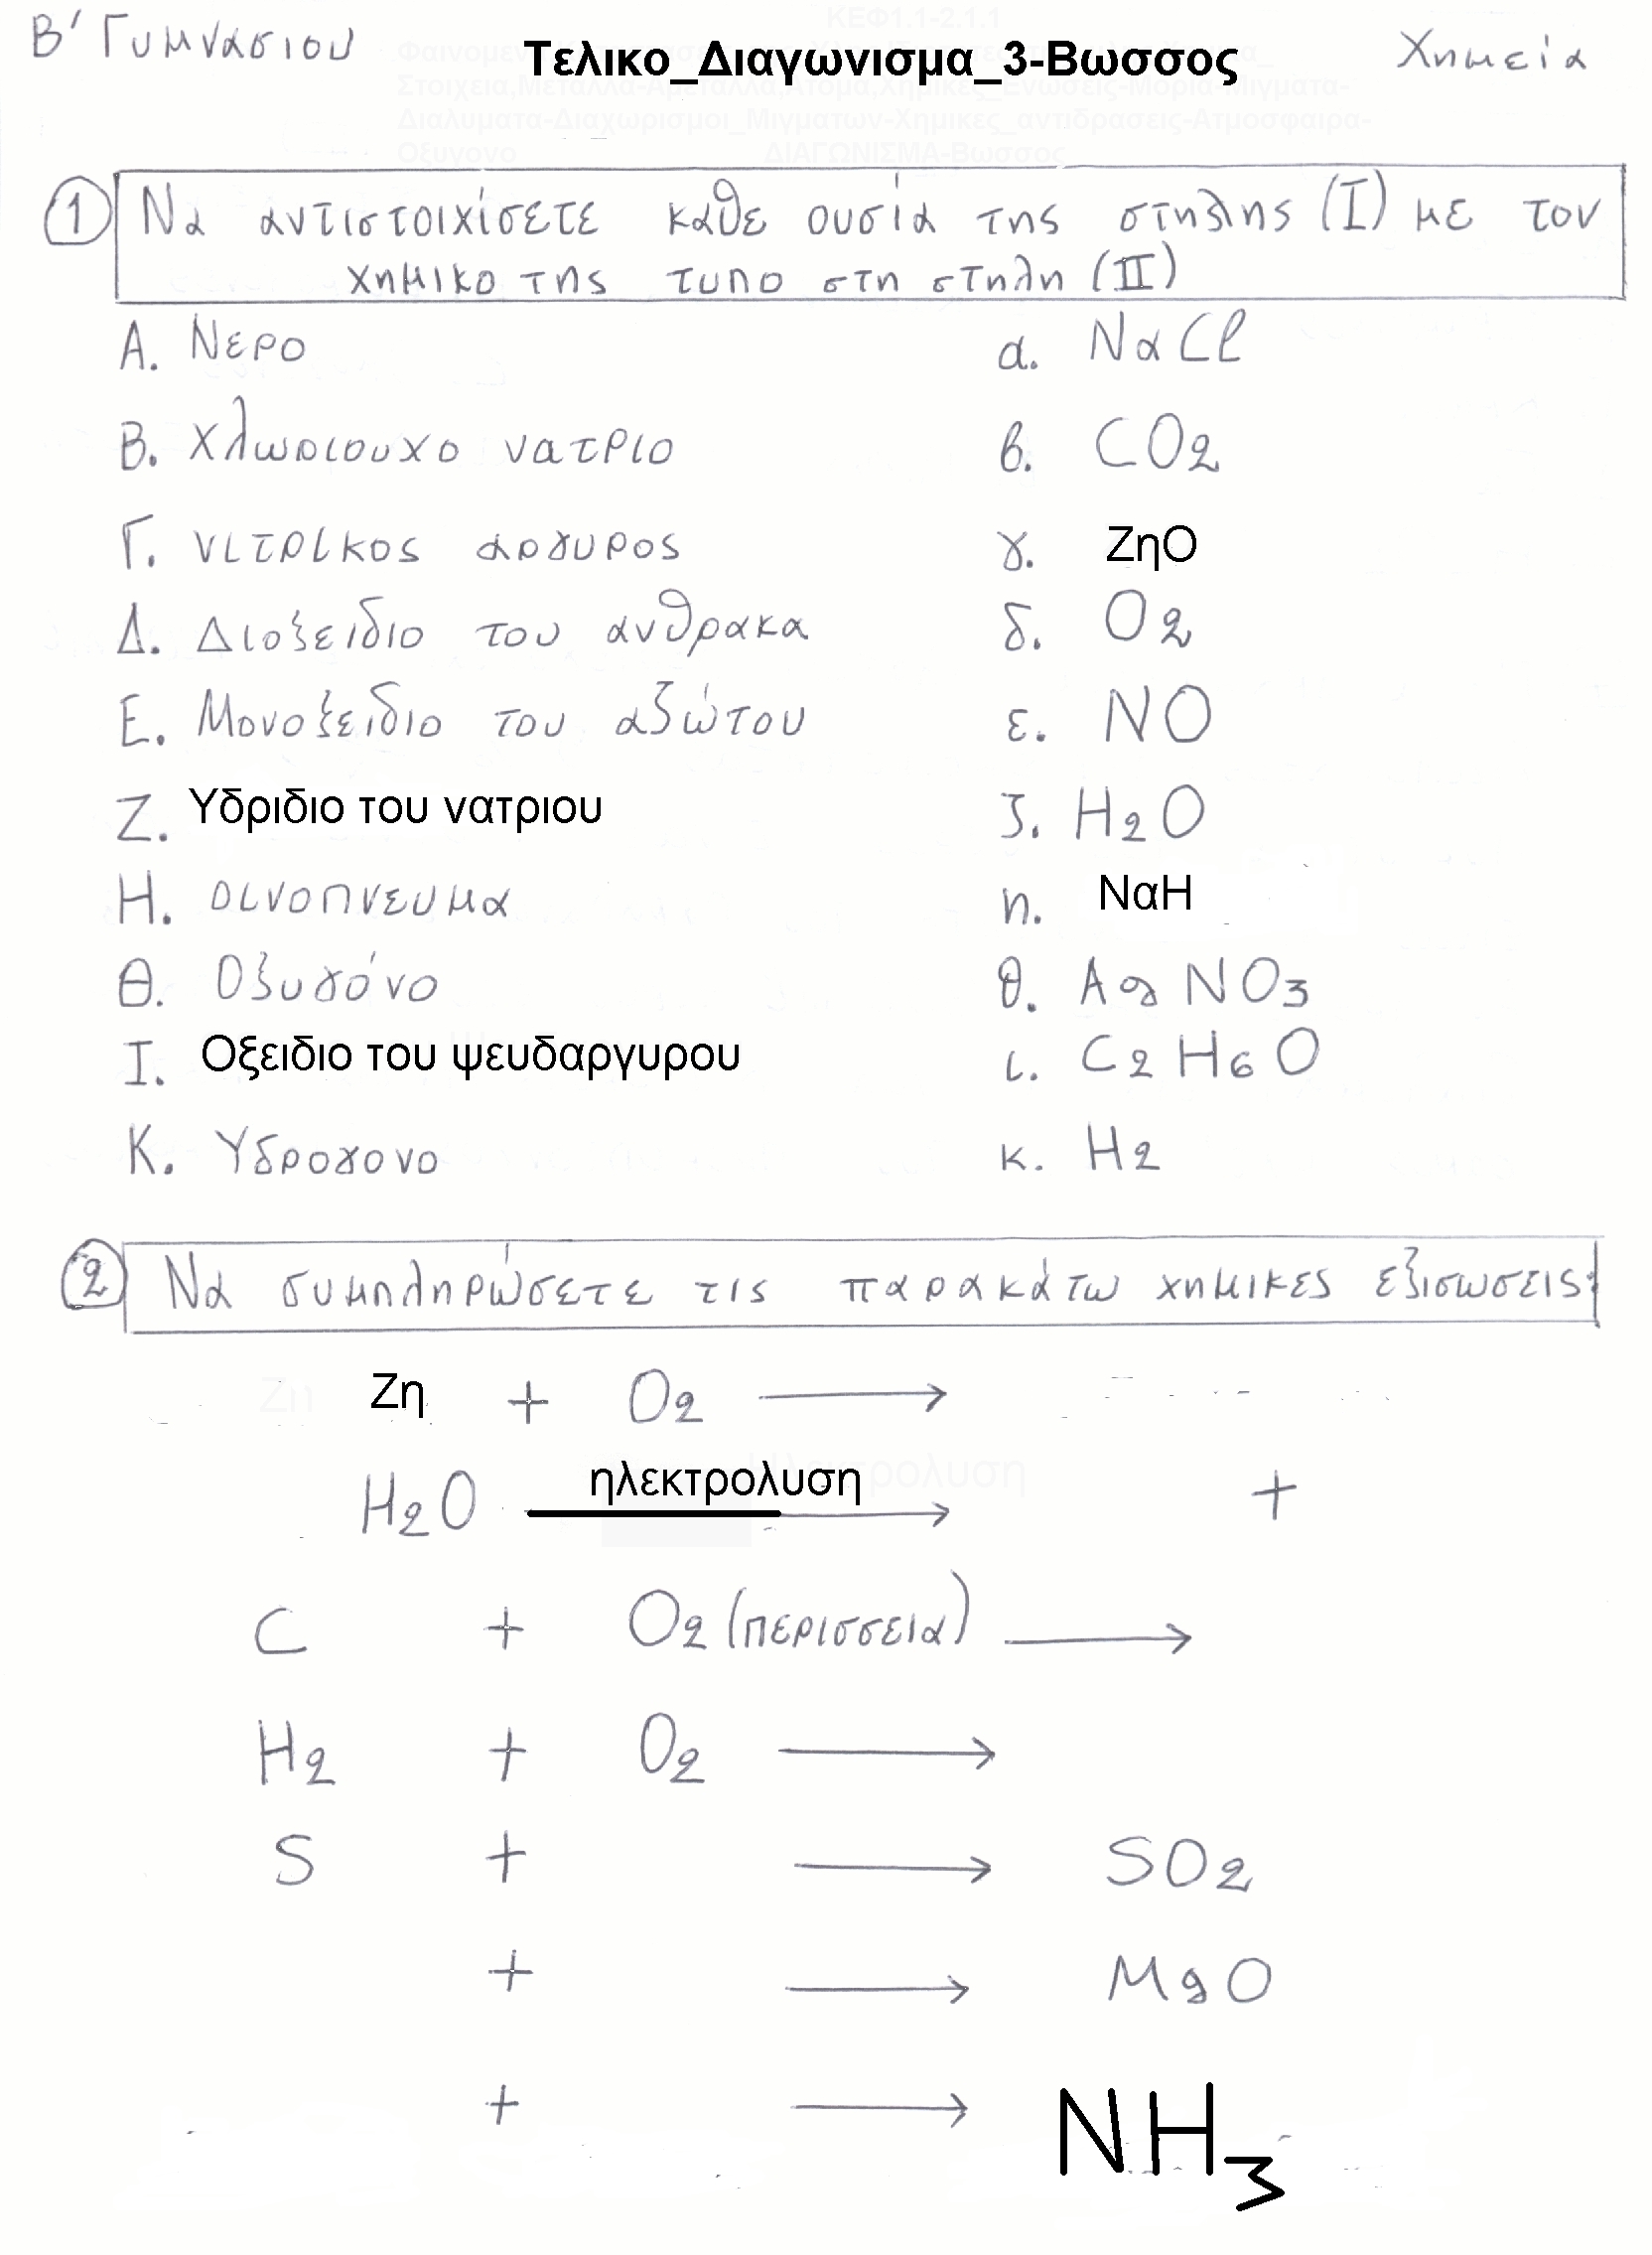 Β' Γυμνασίου
Τελικο_Διαγωνισμα_3-Βωσσος
Χημεία
ΚΕΦ1.1-2.1.1
Στοιχεια,Μεταλλα-Αμεταλλα,Ατομα,Χημικες_Ενωσεις-Μορια-Μιγματα-
Διαλυματα-Διαχωρισμοι_Μιγματων-Χημικες_αντιδρασεις-Ατμοσφαιρα-
Οξυγονο ΔΙΑΓΩΝΙΣΜΑ-Βωσσος
1 Να αντιστοιχίσετε καθε ουσία της στηλης (I) με τον
χημικο της τυπο στη στηλη (II)
Α. Νερο α. NaCl
Β. Χλωριουχο νατριο β. CO2
Γ. νιτρικος αργυρος γ. ΖηΟ
Δ. Διοξειδιο του ανθρακα δ. O2
Ε. Μονοξειδιο του αζώτου ε. NO
Ζ. Υδριδιο του νατριου ζ. H2O
Η. οινοπνευμα η. ΝαΗ
Θ. Οξυγόνο θ. AgNO3
Ι. Οξειδιο του ψευδαργυρου ι. C2H6O
Κ. Υδρογονο κ. H2
2 Να συμπληρώσετε τις παρακάτω χημικες εξισωσεις:
Ζη + O2 →
H2O ηλεκτρολυση → +
C + O2 (περισσεια) →
H2 + O2 →
S + → SO2
+ → MgO
+ → NH3